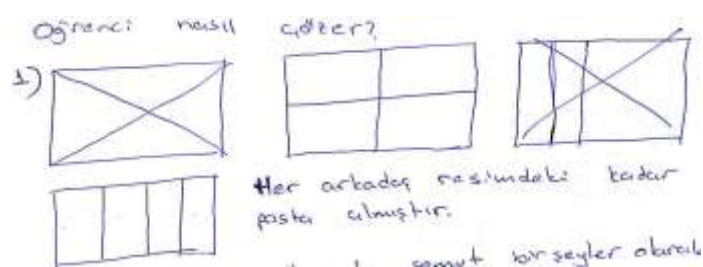 Öğrenci nasıl çözer?
1)
Her arkadaş resimdeki kadar
pasta almıştır.
somut birşeyler olarak